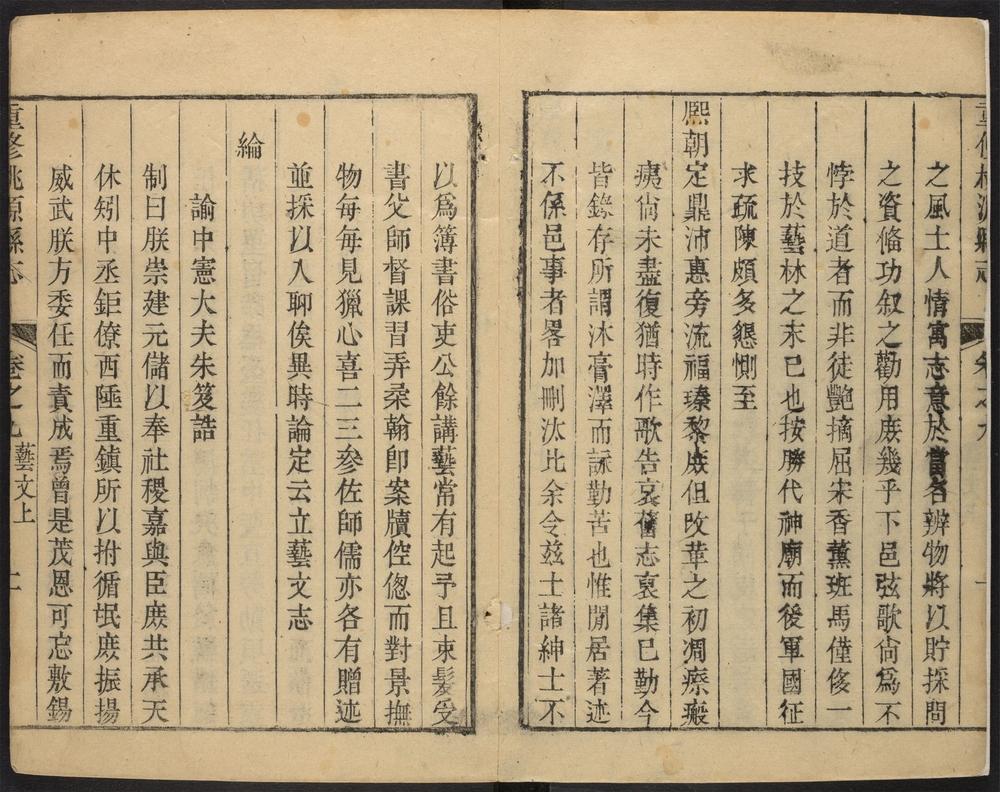 之風土人情寓志意於賞各辨物將以貯採問
之資脩功叙之勸用庻幾乎下邑弦歌尙爲不
悖於道者而非徒艶摘屈宋香薰班馬僅侈一
技於藝林之末已也按勝代神廟而後軍國征
求疏陳頗多懇惻至
熙朝定鼎沛惠旁流福臻黎庻但攺革之初凋瘵瘢
痍尙未盡復猶時作歌告哀舊志裒集已勤今
皆錄存所謂沐膏澤而詠勤苦也惟閒居著述
不係邑事者畧加刪汰比余令兹土諸紳士不
以爲簿書俗吏公餘講藝常有起予且束髮受
書父師督課習弄柔翰卽案牘倥傯而對景撫
物每每見獵心喜二三叅佐師儒亦各有贈述
並採以入聊俟異時論定云立藝文志
綸
諭中憲大夫朱笈誥
制曰朕崇建元儲以奉社稷嘉與臣庻共承天
休矧中丞鉅僚西陲重鎮所以拊循氓庻振揚
威武朕方委任而責成焉曾是茂恩可忘敷錫
重修桃源縣志 卷之九 藝文上 二